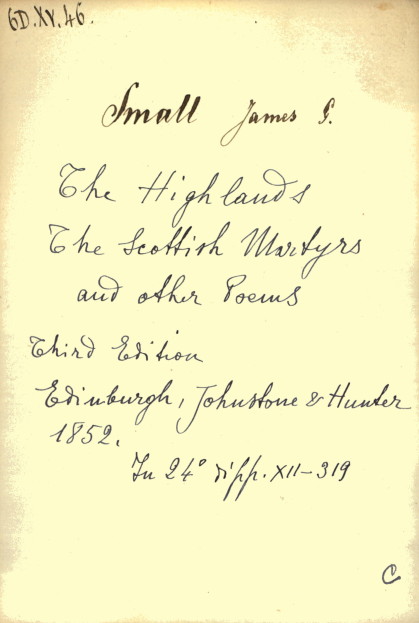 6D.XV.46.
Small James G.
The Highlands
The Scottish Martyrs
and other Poems
Third Edition
Edinburgh, Johnstone & Hunter
1852.
In 24° di pp. XII-319
C